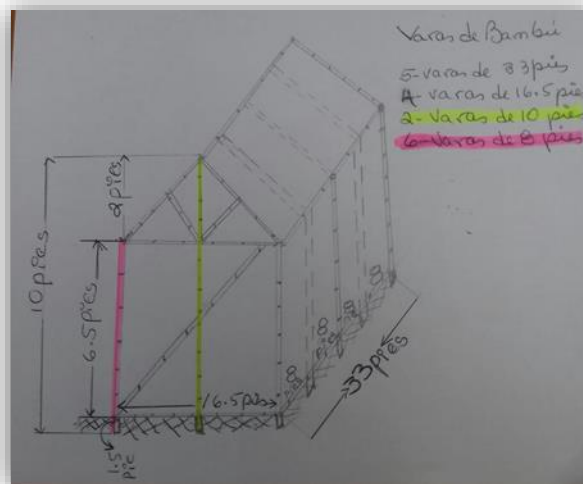 Varas de Bambú
5-varas de 33 pies
4-varas de 16.5 pies
2-Varas de 10 pies
6-Varas de 8 pies
2 pies
10 pies
6.5 pies
16.5 pies
33 pies
1.5
pie